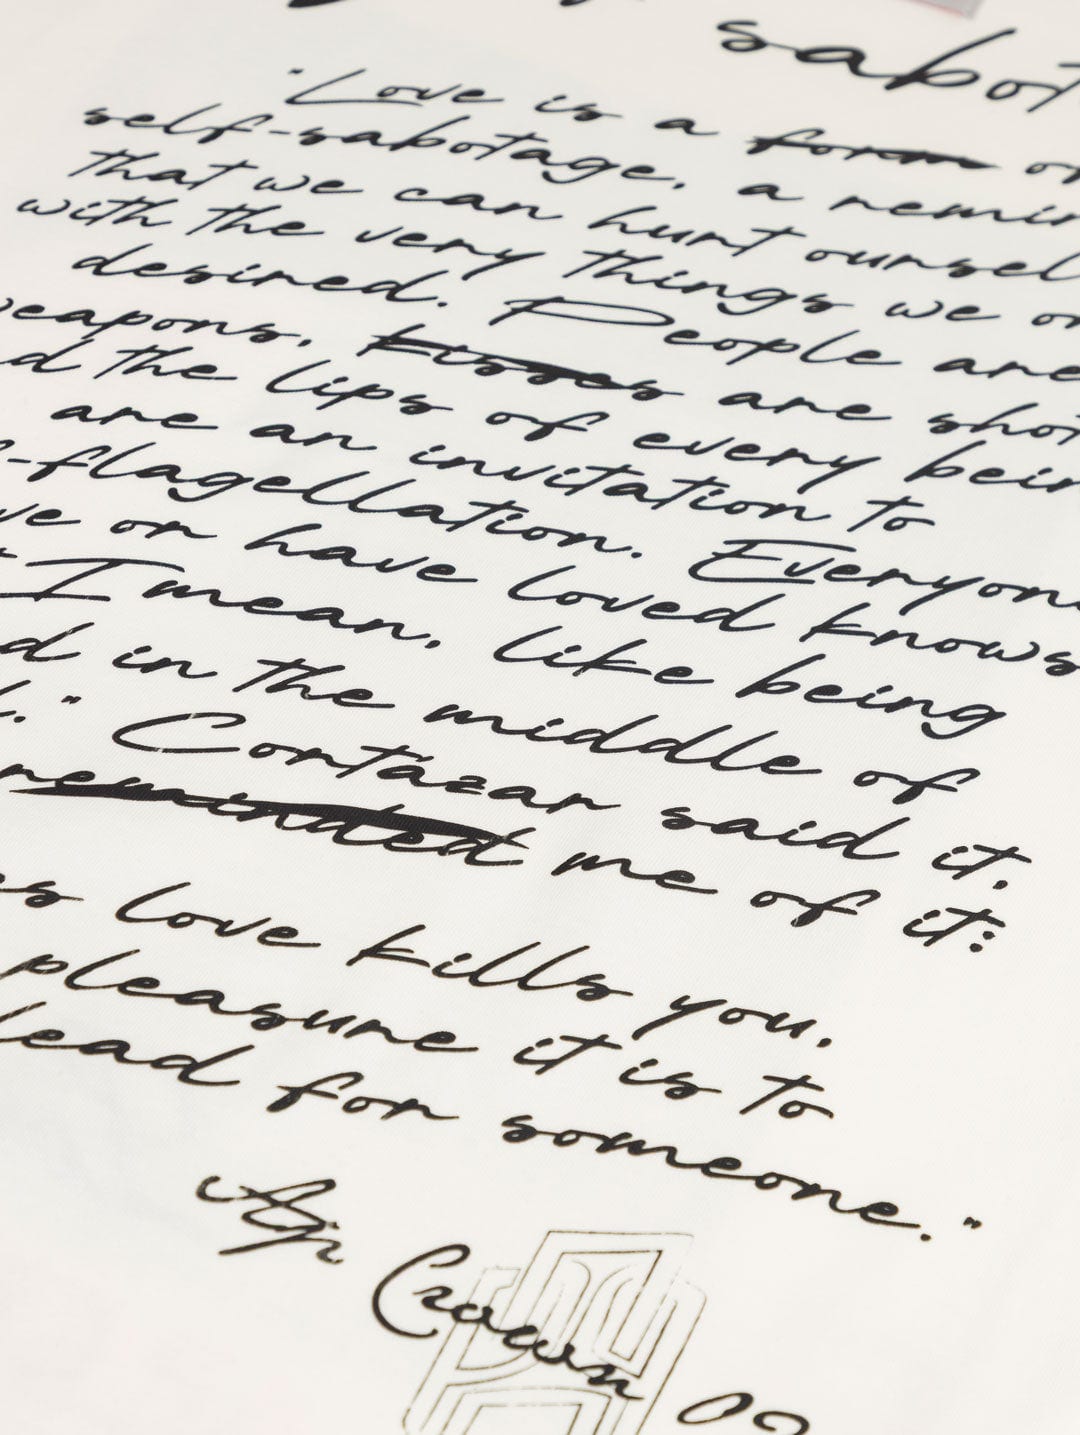 sabot
"Love is a form or
self-sabotage, a remin
that we can hurt oursel
with the very things we on
desired. People are
weapons, kisses are shot
d the lips of every bein
are an invitation to
-flagellation. Everyone
ve or have loved knows
t I mean, like being
d in the middle of
." Cortazar said it,
reminded me of it:
es love kills you,
pleasure it is to
dead for someone."
Crown 02